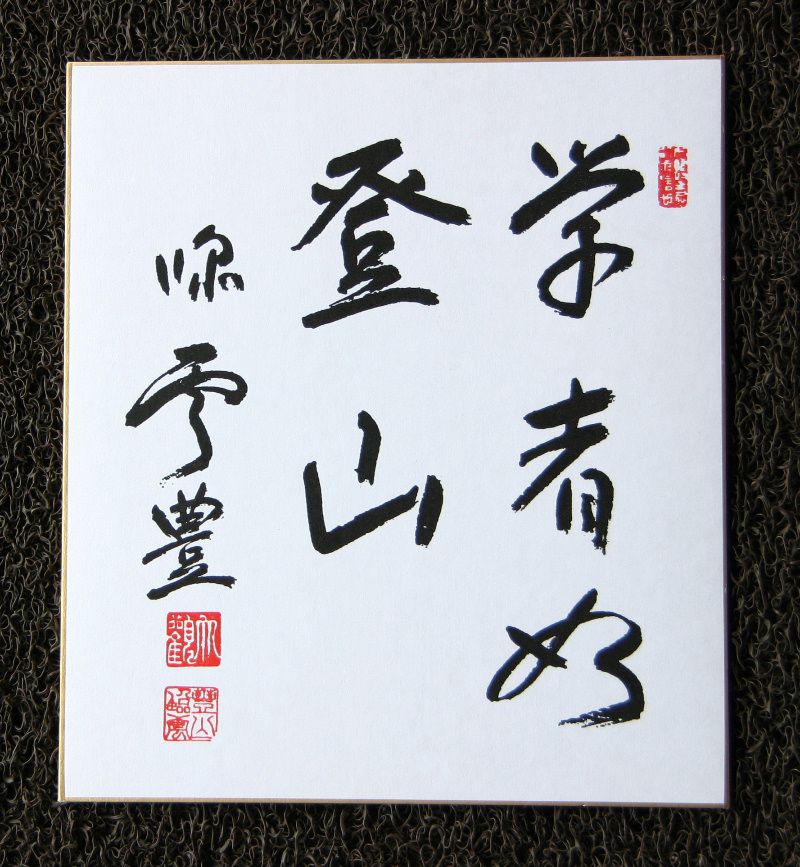 学者如
登山
雲豊